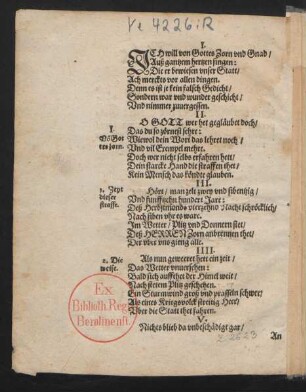 Ye 4226:R
I.
ICH will von Gottes Zorn vnd Gnad/
Auß gantzem hertzen singen:
Die er bewiesen vnser Statt/
Ach merckts vor allen dingen.
Denn es ist je kein falsch Gedicht/
Sondern war vnd wunder geschicht/
Vnd nimmer zuuergessen.
II.
O GOTT wer het geglaubet doch/
1. Das du so zörnest sehr:
Võ Got Wiewol dein Wort das lehret noch/
tes zorn. Vnd vil Exempel mehre.
Doch wer nicht selbs erfahren hett/
Dein starcke Hand die straffen thet/
Kein Mensch das köndte glauben.
III.
Hört/ man zelt zwey vnd sibentzig/
Vnd fünfftzehn hundert Jare:
dieser Deß Herbstmonds vierzehnd Nacht schröcklich/
straffe. Nach siben vhr es ware.
Im Wetter/ Plitz vnd Donnern stet/
Deß HERREN Zorn anbrennen thet/
Der vber vns gieng alle.
IIII.
2. Die Als man geweteret hett ein zeit/
weise. Das Wetter
Bald sich auffthet der Himel weit/
Nach steten Plitz geschehen.
Ein Sturmwind groß vnd prasseln schwer/
Als eines Kriegsvolck streitig Heer/
Vber die Statt thet fahren.
V.
Nichts blieb da vnbeschädigt gar/
An
Ex
Biblioth. Reg.
Berolinensi.